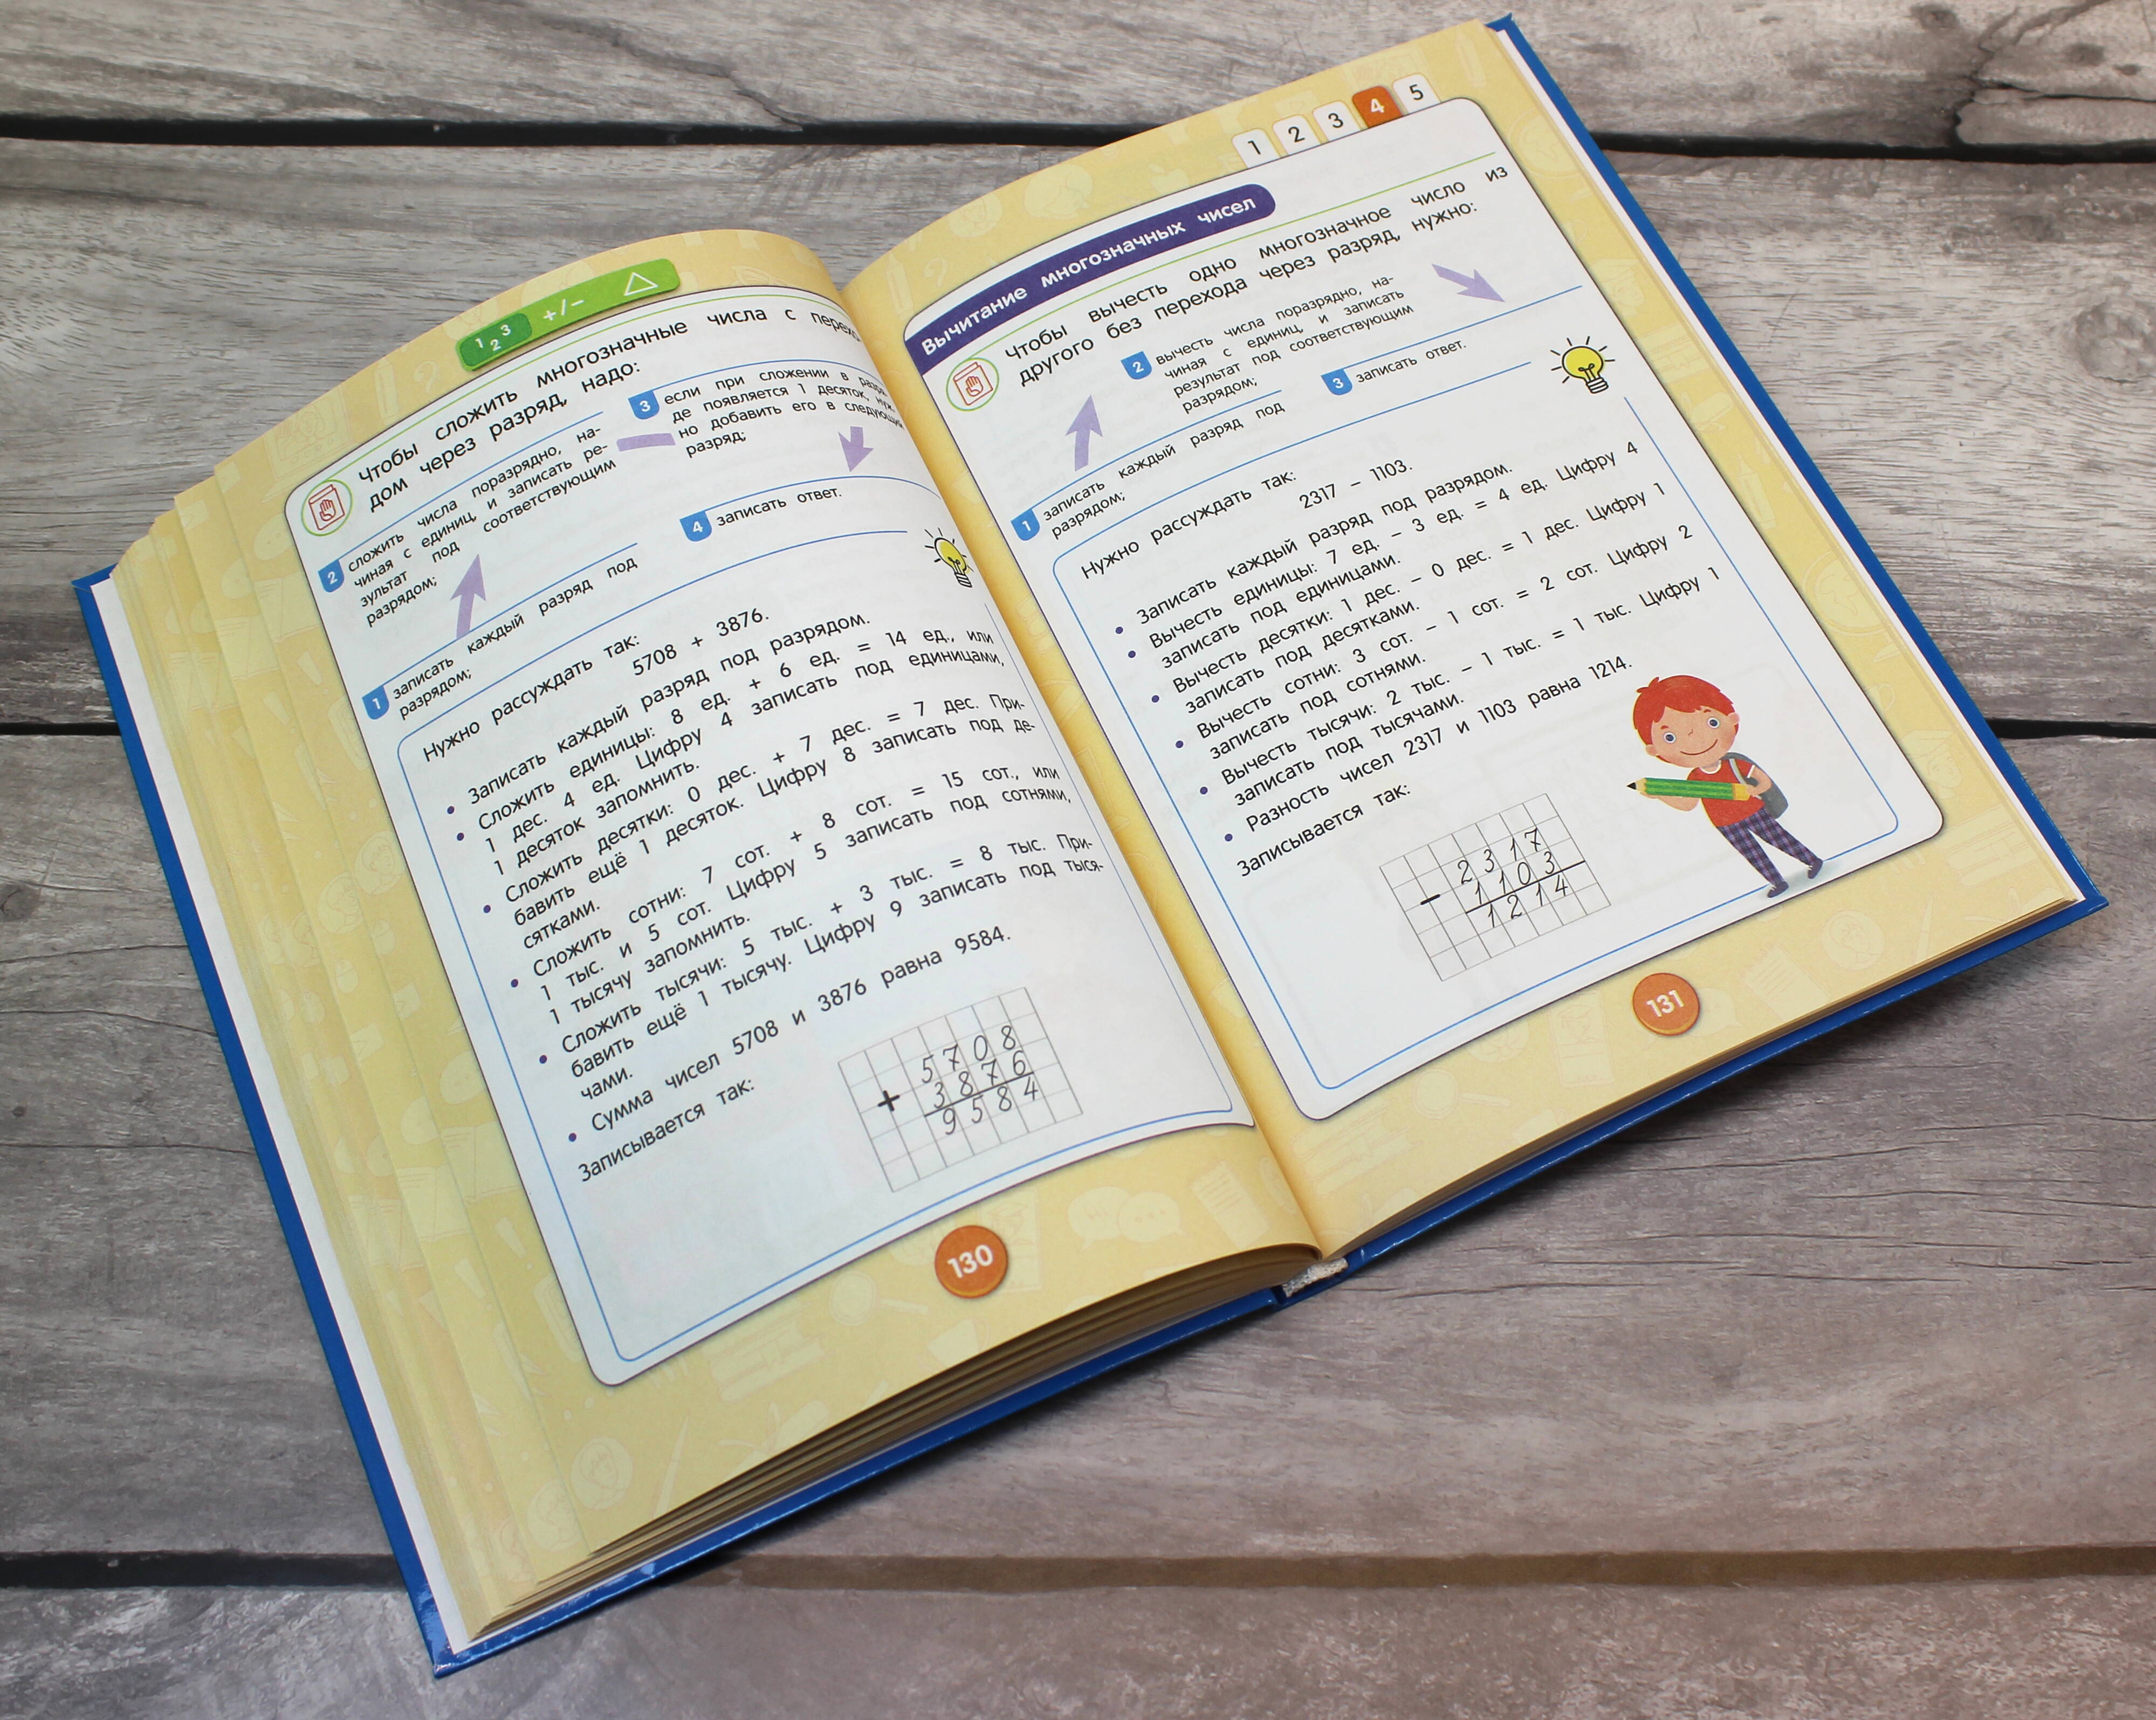 1 2 3 +/− △
Чтобы сложить многозначные числа с перехо-
дом через разряд, надо:
2 сложить числа поразрядно, на-
чиная с единиц, и записать ре-
зультат под соответствующим
разрядом;
3 если при сложении в разря-
де появляется 1 десяток, нуж-
но добавить его в следующий
разряд;
1 записать каждый разряд под
разрядом;
4 записать ответ.
Нужно рассуждать так:
5708 + 3876.
• Записать каждый разряд под разрядом.
• Сложить единицы: 8 ед. + 6 ед. = 14 ед., или
1 дес. 4 ед. Цифру 4 записать под единицами,
1 десяток запомнить.
• Сложить десятки: 0 дес. + 7 дес. = 7 дес. При-
бавить ещё 1 десяток. Цифру 8 записать под де-
сятками.
• Сложить сотни: 7 сот. + 8 сот. = 15 сот., или
1 тыс. и 5 сот. Цифру 5 записать под сотнями,
1 тысячу запомнить.
• Сложить тысячи: 5 тыс. + 3 тыс. = 8 тыс. При-
бавить ещё 1 тысячу. Цифру 9 записать под тыся-
чами.
• Сумма чисел 5708 и 3876 равна 9584.
Записывается так:
5708
+ 3876
9584
130
1 2 3 4 5
Вычитание многозначных чисел
Чтобы вычесть одно многозначное число из
другого без перехода через разряд, нужно:
2 вычесть числа поразрядно, на-
чиная с единиц, и записать
результат под соответствующим
разрядом;
1 записать каждый разряд под
разрядом;
3 записать ответ.
Нужно рассуждать так:
2317 − 1103.
• Записать каждый разряд под разрядом.
• Вычесть единицы: 7 ед. − 3 ед. = 4 ед. Цифру 4
записать под единицами.
• Вычесть десятки: 1 дес. − 0 дес. = 1 дес. Цифру 1
записать под десятками.
• Вычесть сотни: 3 сот. − 1 сот. = 2 сот. Цифру 2
записать под сотнями.
• Вычесть тысячи: 2 тыс. − 1 тыс. = 1 тыс. Цифру 1
записать под тысячами.
• Разность чисел 2317 и 1103 равна 1214.
Записывается так:
2317
− 1103
1214
131